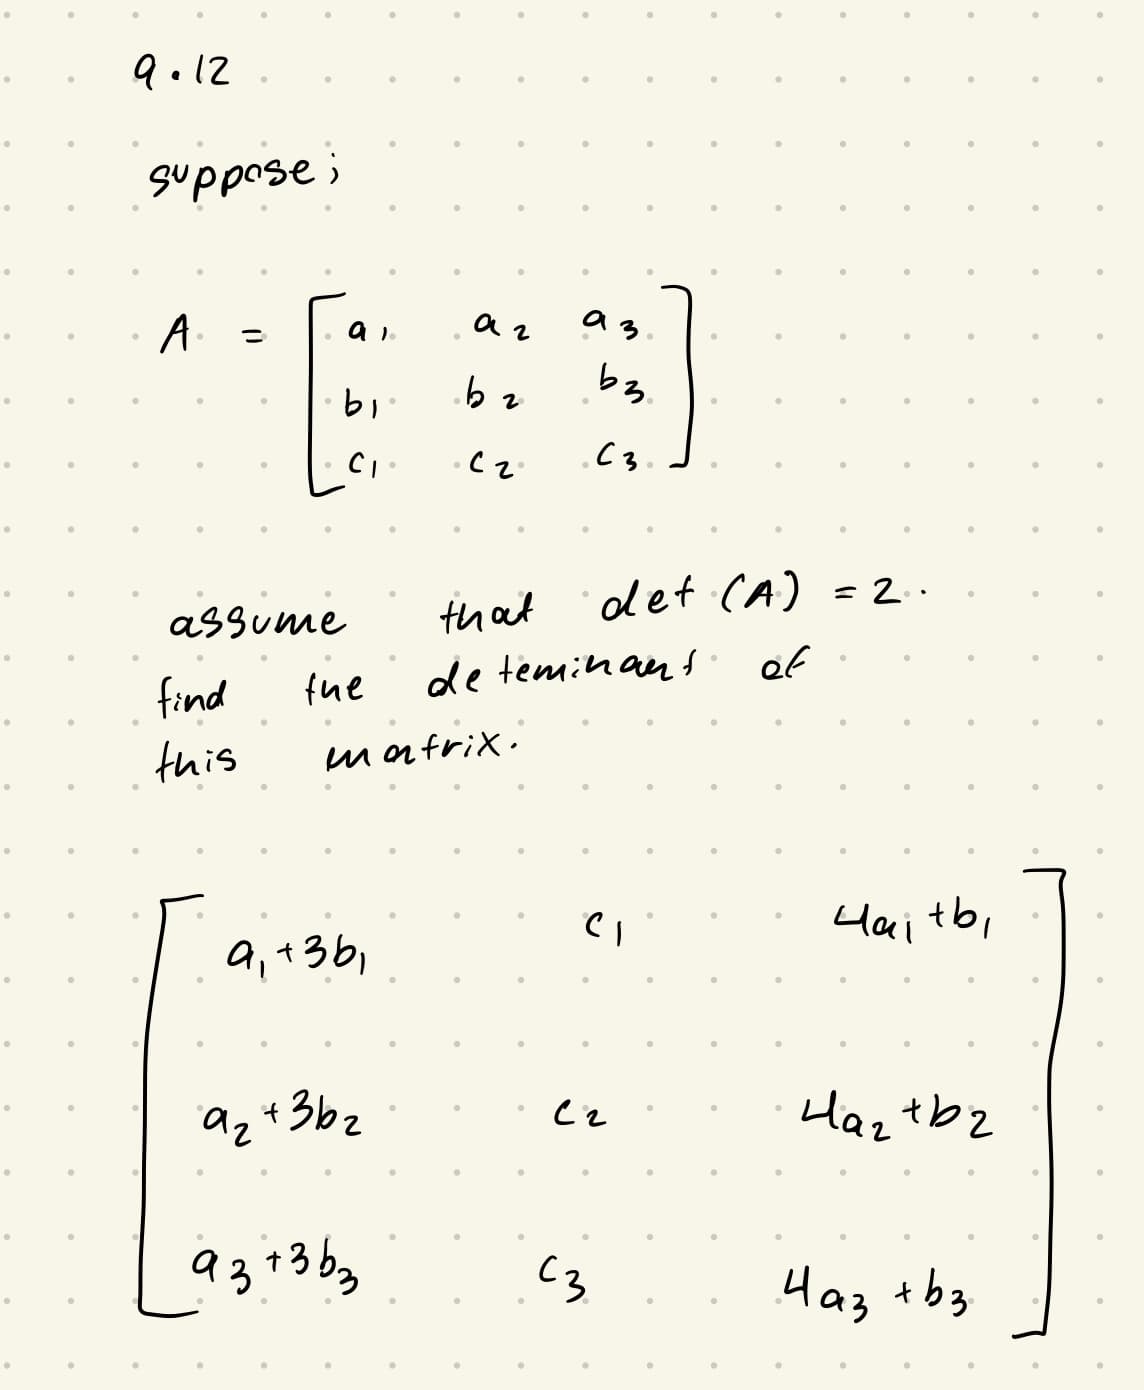 9.12
suppose;
A = [ a1 a2 a3
b1 b2 b3
c1 c2 c3 ]
assume that det (A) = 2.
find the deteminant of
this matrix.
[ a1+3b1 c1 4a1+b1
a2+3b2 c2 4a2+b2
a3+3b3 c3 4a3+b3 ]